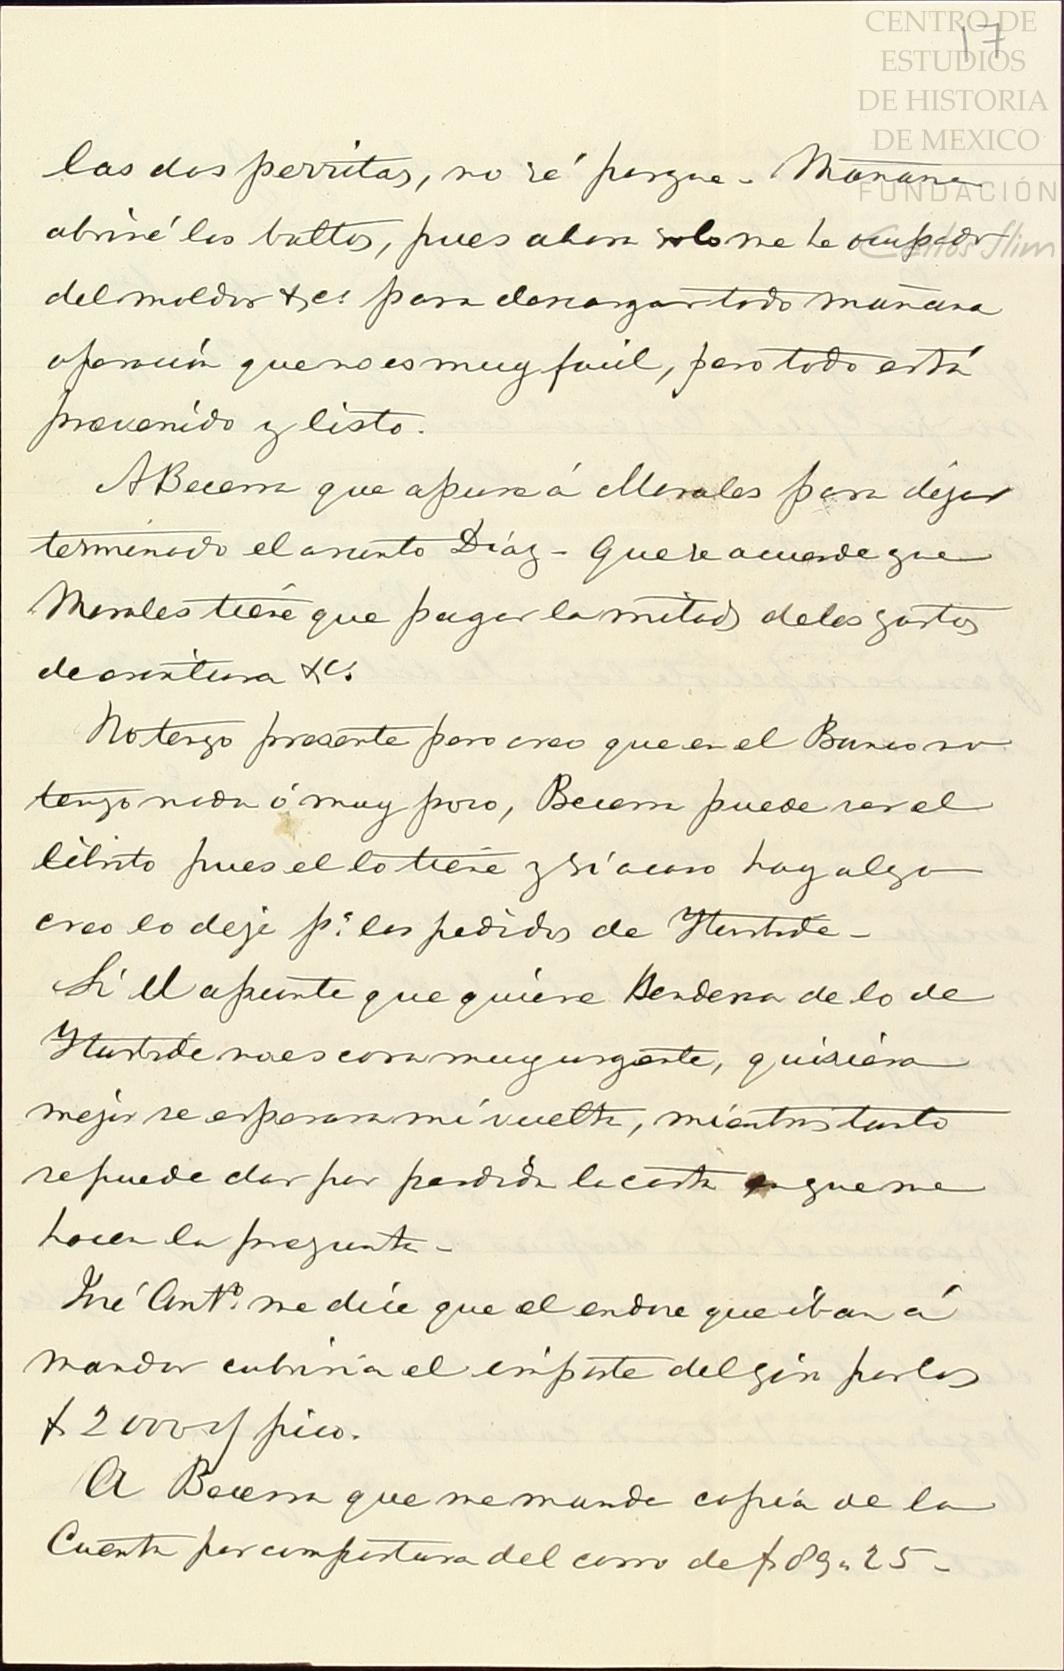 CENTRO DE
ESTUDIOS
DE HISTORIA
DE MEXICO
FUNDACIÓN
Carlos Slim
17
las dos perritas, no sé porque - Mañana
abriré los bultos, pues ahora solo me he ocupado
del moldor &c. para descargar todo mañana
operación que no es muy fácil, pero todo está
prevenido y listo.
A Becerra que apure á Morales para dejar
terminado el asunto Díaz - Que se acuerde que
Morales tiene que pagar la mitad de los gastos
de escritura &c.
No tengo presente pero creo que en el Banco no
tengo nada ó muy poco, Becerra puede ver el
librito pues el lo tiene y si acaso hay algo
creo lo deje pa. los pedidos de Yturbide -
Si el apunte que quiere de lo de
Yturbide no es cosa muy urgente, quisiera
mejor se esperara mi vuelta, mientras tanto
se puede dar por perdida la carta en que me
hacen la pregunta -
José Anto. me dice que el endose que iban á
mandar cubriría el importe del giro por los
$ 2000 y pico.
A Becerra que me mande copia de la
Cuenta por compostura del carro de $ 89.25 -